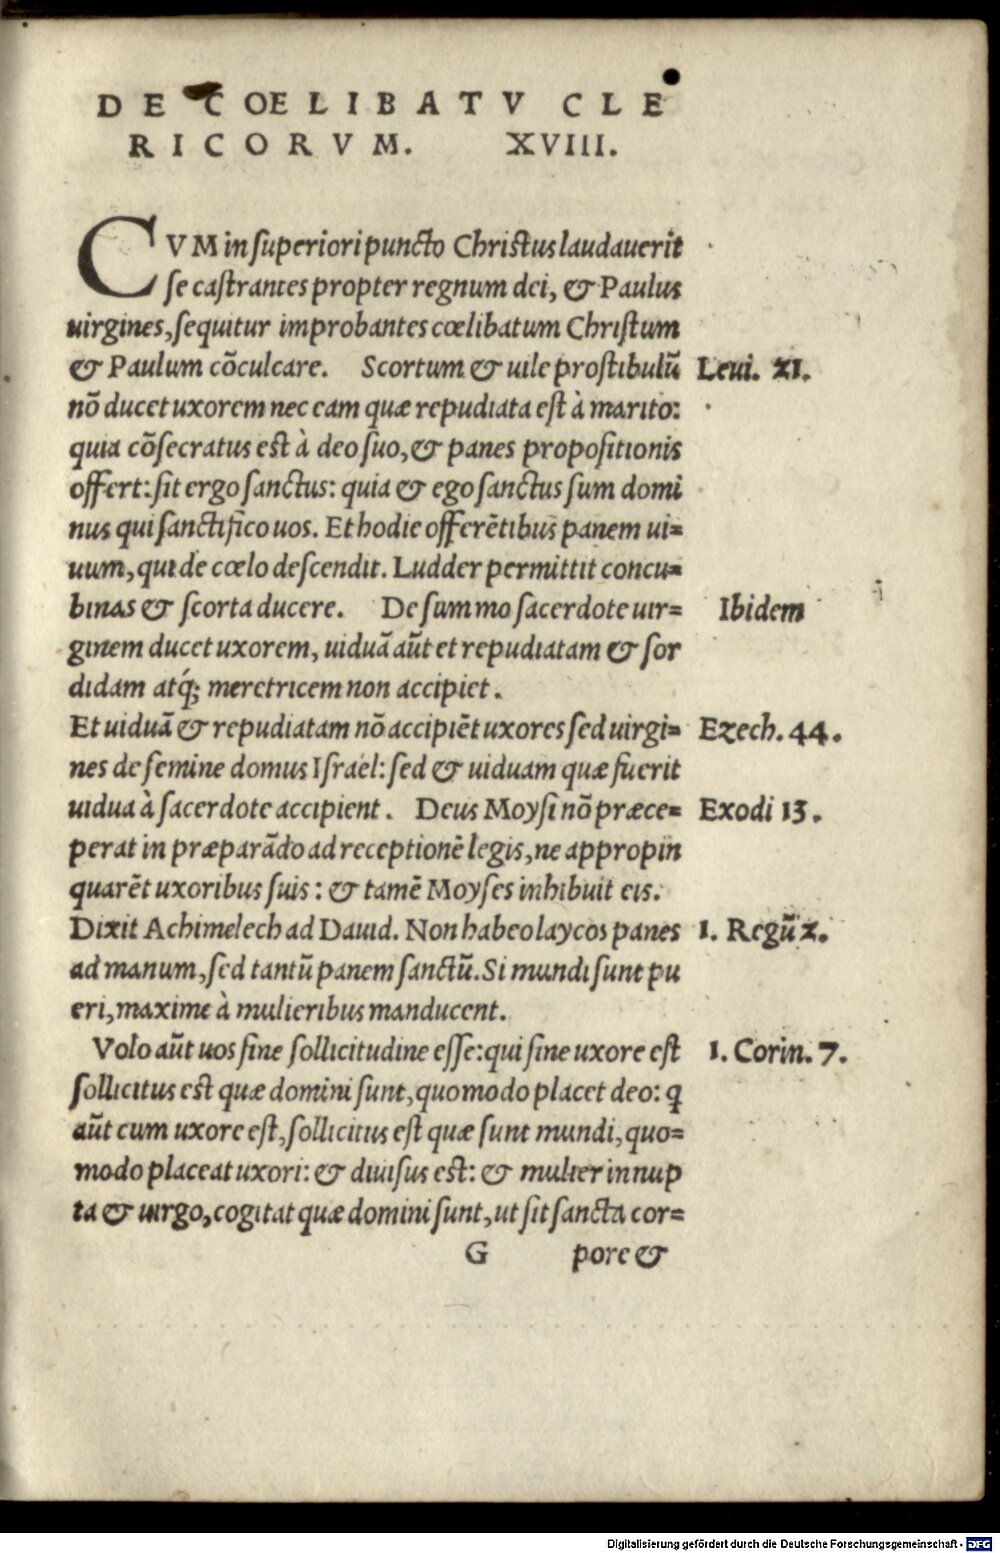 DE COELIBATV CLE
RICORVM. XVIII.
CVM in superiori puncto Christus laudauerit
se castrantes propter regnum dei, & Paulus
uirgines, sequitur improbantes cœlibatum Christum
& Paulum cõculcare. Scortum & uile prostibulũ Leui. XI.
nõ ducet uxorem nec eam quæ repudiata est à marito:
quia cõsecratus est à deo suo, & panes propositionis
offert: sit ergo sanctus: quia & ego sanctus sum domi
nus qui sanctifico uos. Et hodie offerẽtibus panem ui=
uum, qui de cœlo descendit. Ludder permittit concu=
binas & scorta ducere. De summo sacerdote uir= Ibidem
ginem ducet uxorem, uiduã aũt et repudiatam & sor
didam atq́; meretricem non accipiet.
Et uiduã & repudiatam nõ accipiẽt uxores sed uirgi= Ezech. 44.
nes de semine domus Israel: sed & uiduam quæ fuerit
uidua à sacerdote accipient. Deus Moysi nõ præce= Exodi 13.
perat in præparãdo ad receptionẽ legis, ne appropin
quarẽt uxoribus suis: & tamẽ Moyses inhibuit eis.
Dixit Achimelech ad Dauid. Non habeo laycos panes 1. Regũ 2.
ad manum, sed tantũ panem sanctũ. Si mundi sunt pu
eri, maxime à mulieribus manducent.
Volo aũt uos sine sollicitudine esse: qui sine uxore est 1. Corin. 7.
sollicitus est quæ domini sunt, quomodo placet deo: q
aũt cum uxore est, sollicitus est quæ sunt mundi, quo=
modo placeat uxori: & diuisus est: & mulier innup
ta & uirgo, cogitat quæ domini sunt, ut sit sancta cor=
G pore &
Digitalisierung gefördert durch die Deutsche Forschungsgemeinschaft - DFG